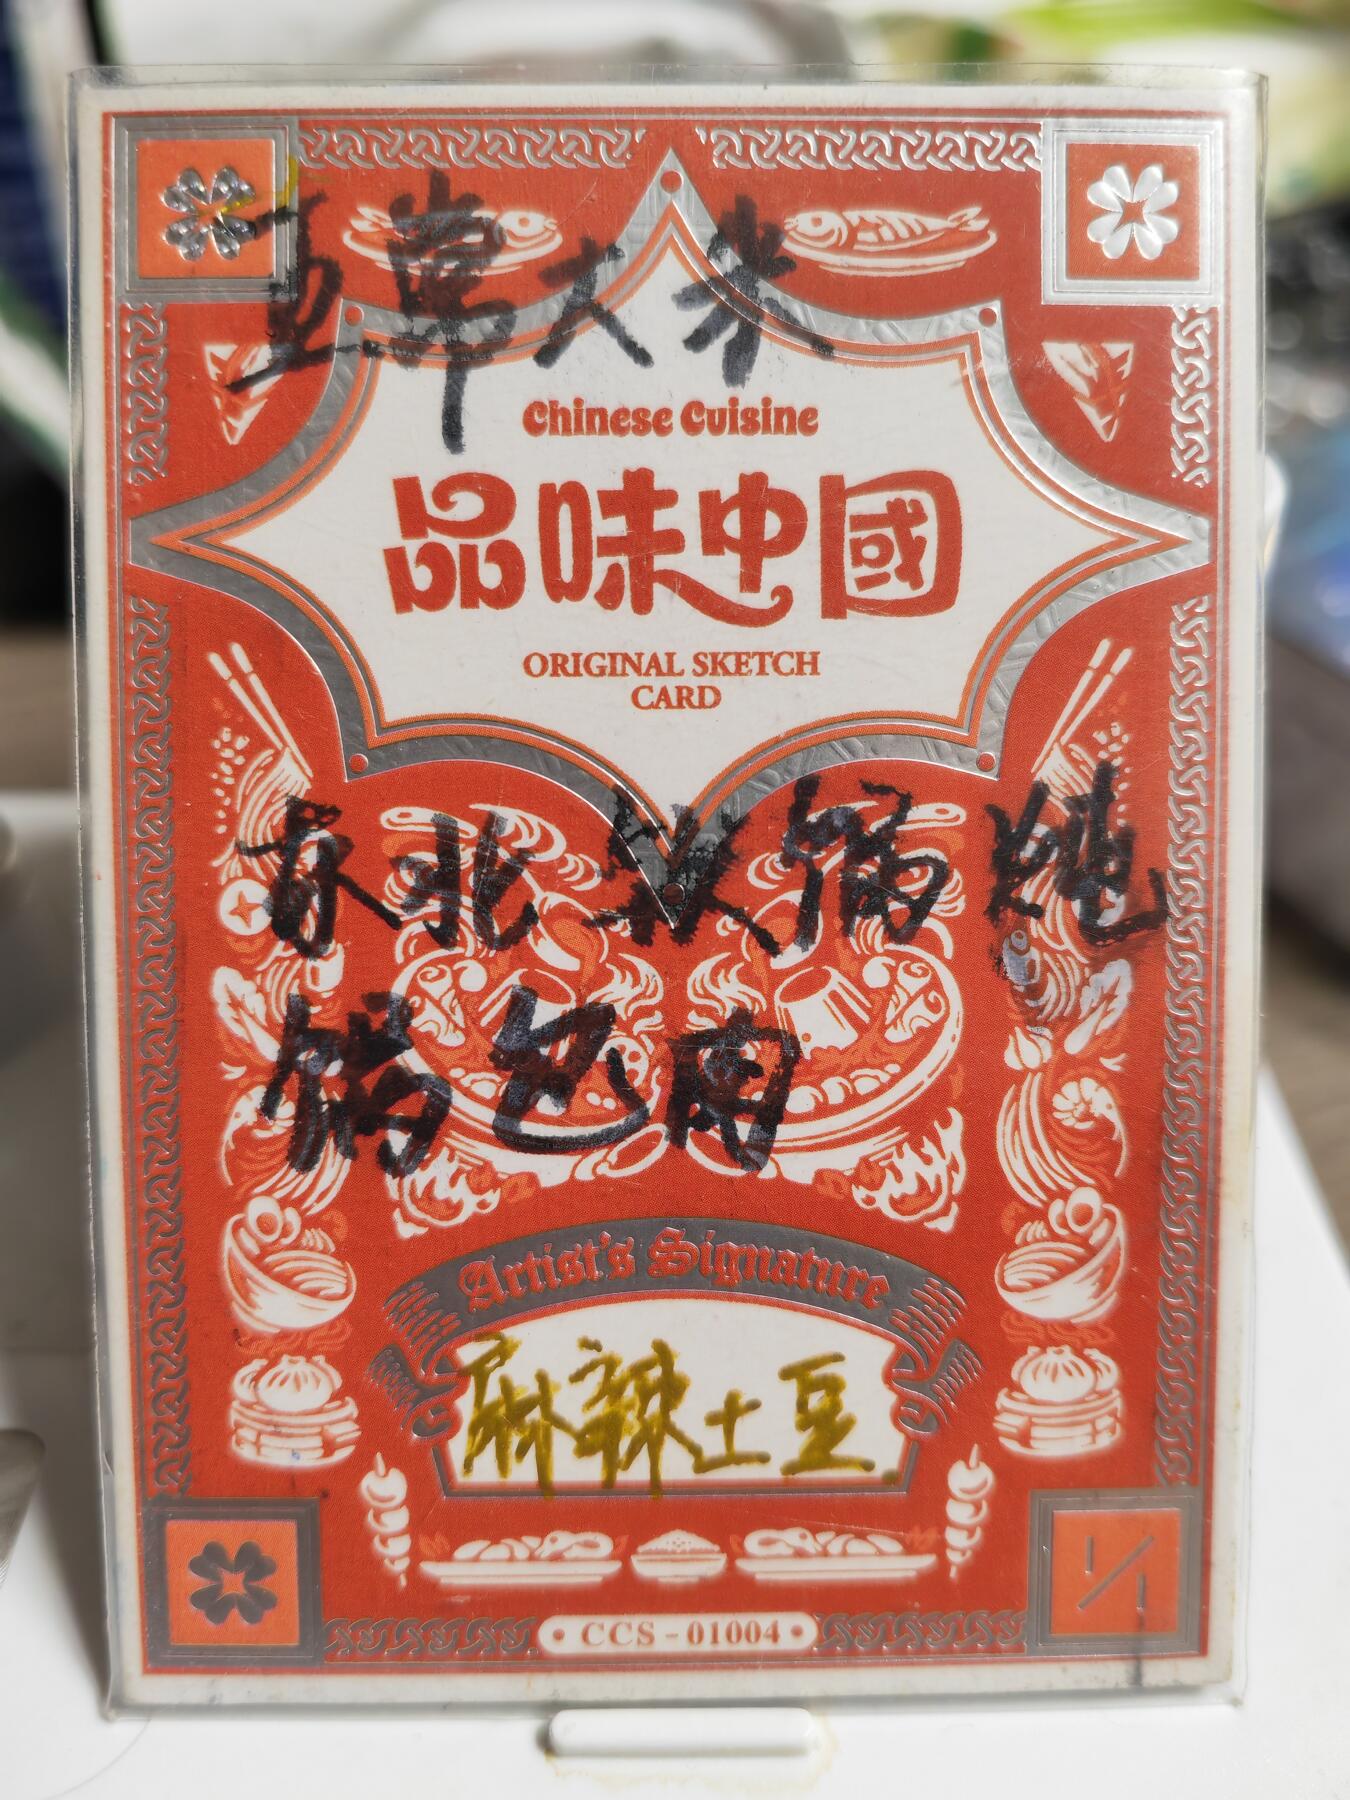 五常大米
Chinese Cuisine
品味中國
ORIGINAL SKETCH
CARD
东北 锅炖
锅包肉
Artist's Signature
麻辣土豆
1/1
CCS - 01004